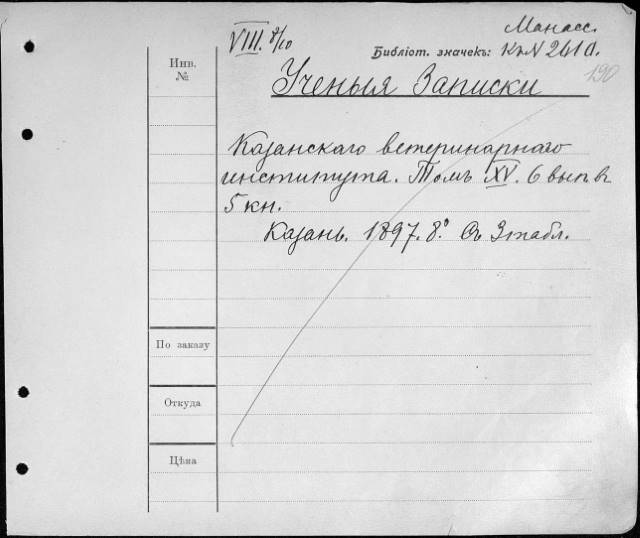 Манасс.
VIII. 8/10
Библіот. значекъ: КхN 241d.
190
Инв.
№
Ученыя Записки
Казанскаго ветеринарнаго
института. Томъ XV. 6 вып. въ
5 кн.
Казань. 1897. 8º. Съ 3 табл.
По заказу
Откуда
Цѣна